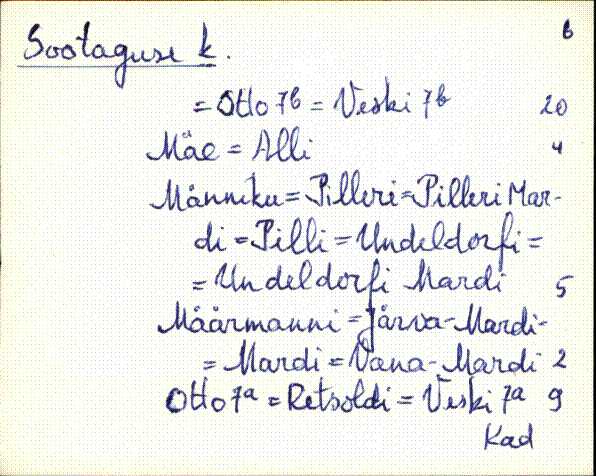 Sootaguse k. 6
= Otto 7b = Veski 7b 20
Mäe = Alli 4
Männiku = Pilleri = Pilleri Mar-
di = Pilli = Undeldorfi =
= Undeldorfi Mardi 5
Määrmanni = Järva-Mardi-
= Mardi = Vana-Mardi 2
Otto 7a = Retsoldi = Veski 7a 9
Kad